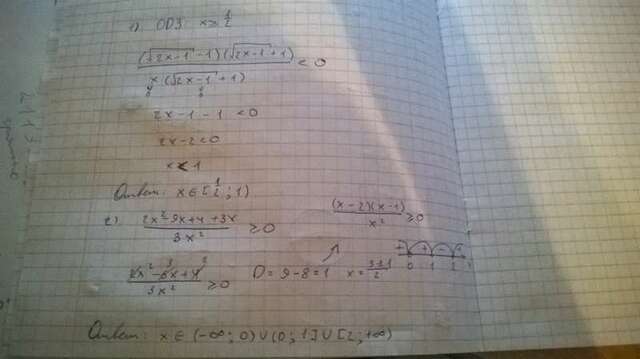 1) ОДЗ: x ≥ 1/2
(√2x-1 - 1)(√2x-1 + 1) / x(√2x-1 + 1) < 0
2x-1-1 < 0
2x-2<0
x < 1
Ответ: x ∈ [1/2; 1)
2) 2x² 9x+4+3x / 3x² ≥ 0
(x-2)(x-1) / x² ≥ 0
x² - x + / 3x² ≥ 0 D = 9-8=1 x = 3±1 / 2
+ + - + 0 1 2
Ответ: x ∈ (-∞; 0) ∪ (0; 1] ∪ [2; +∞)